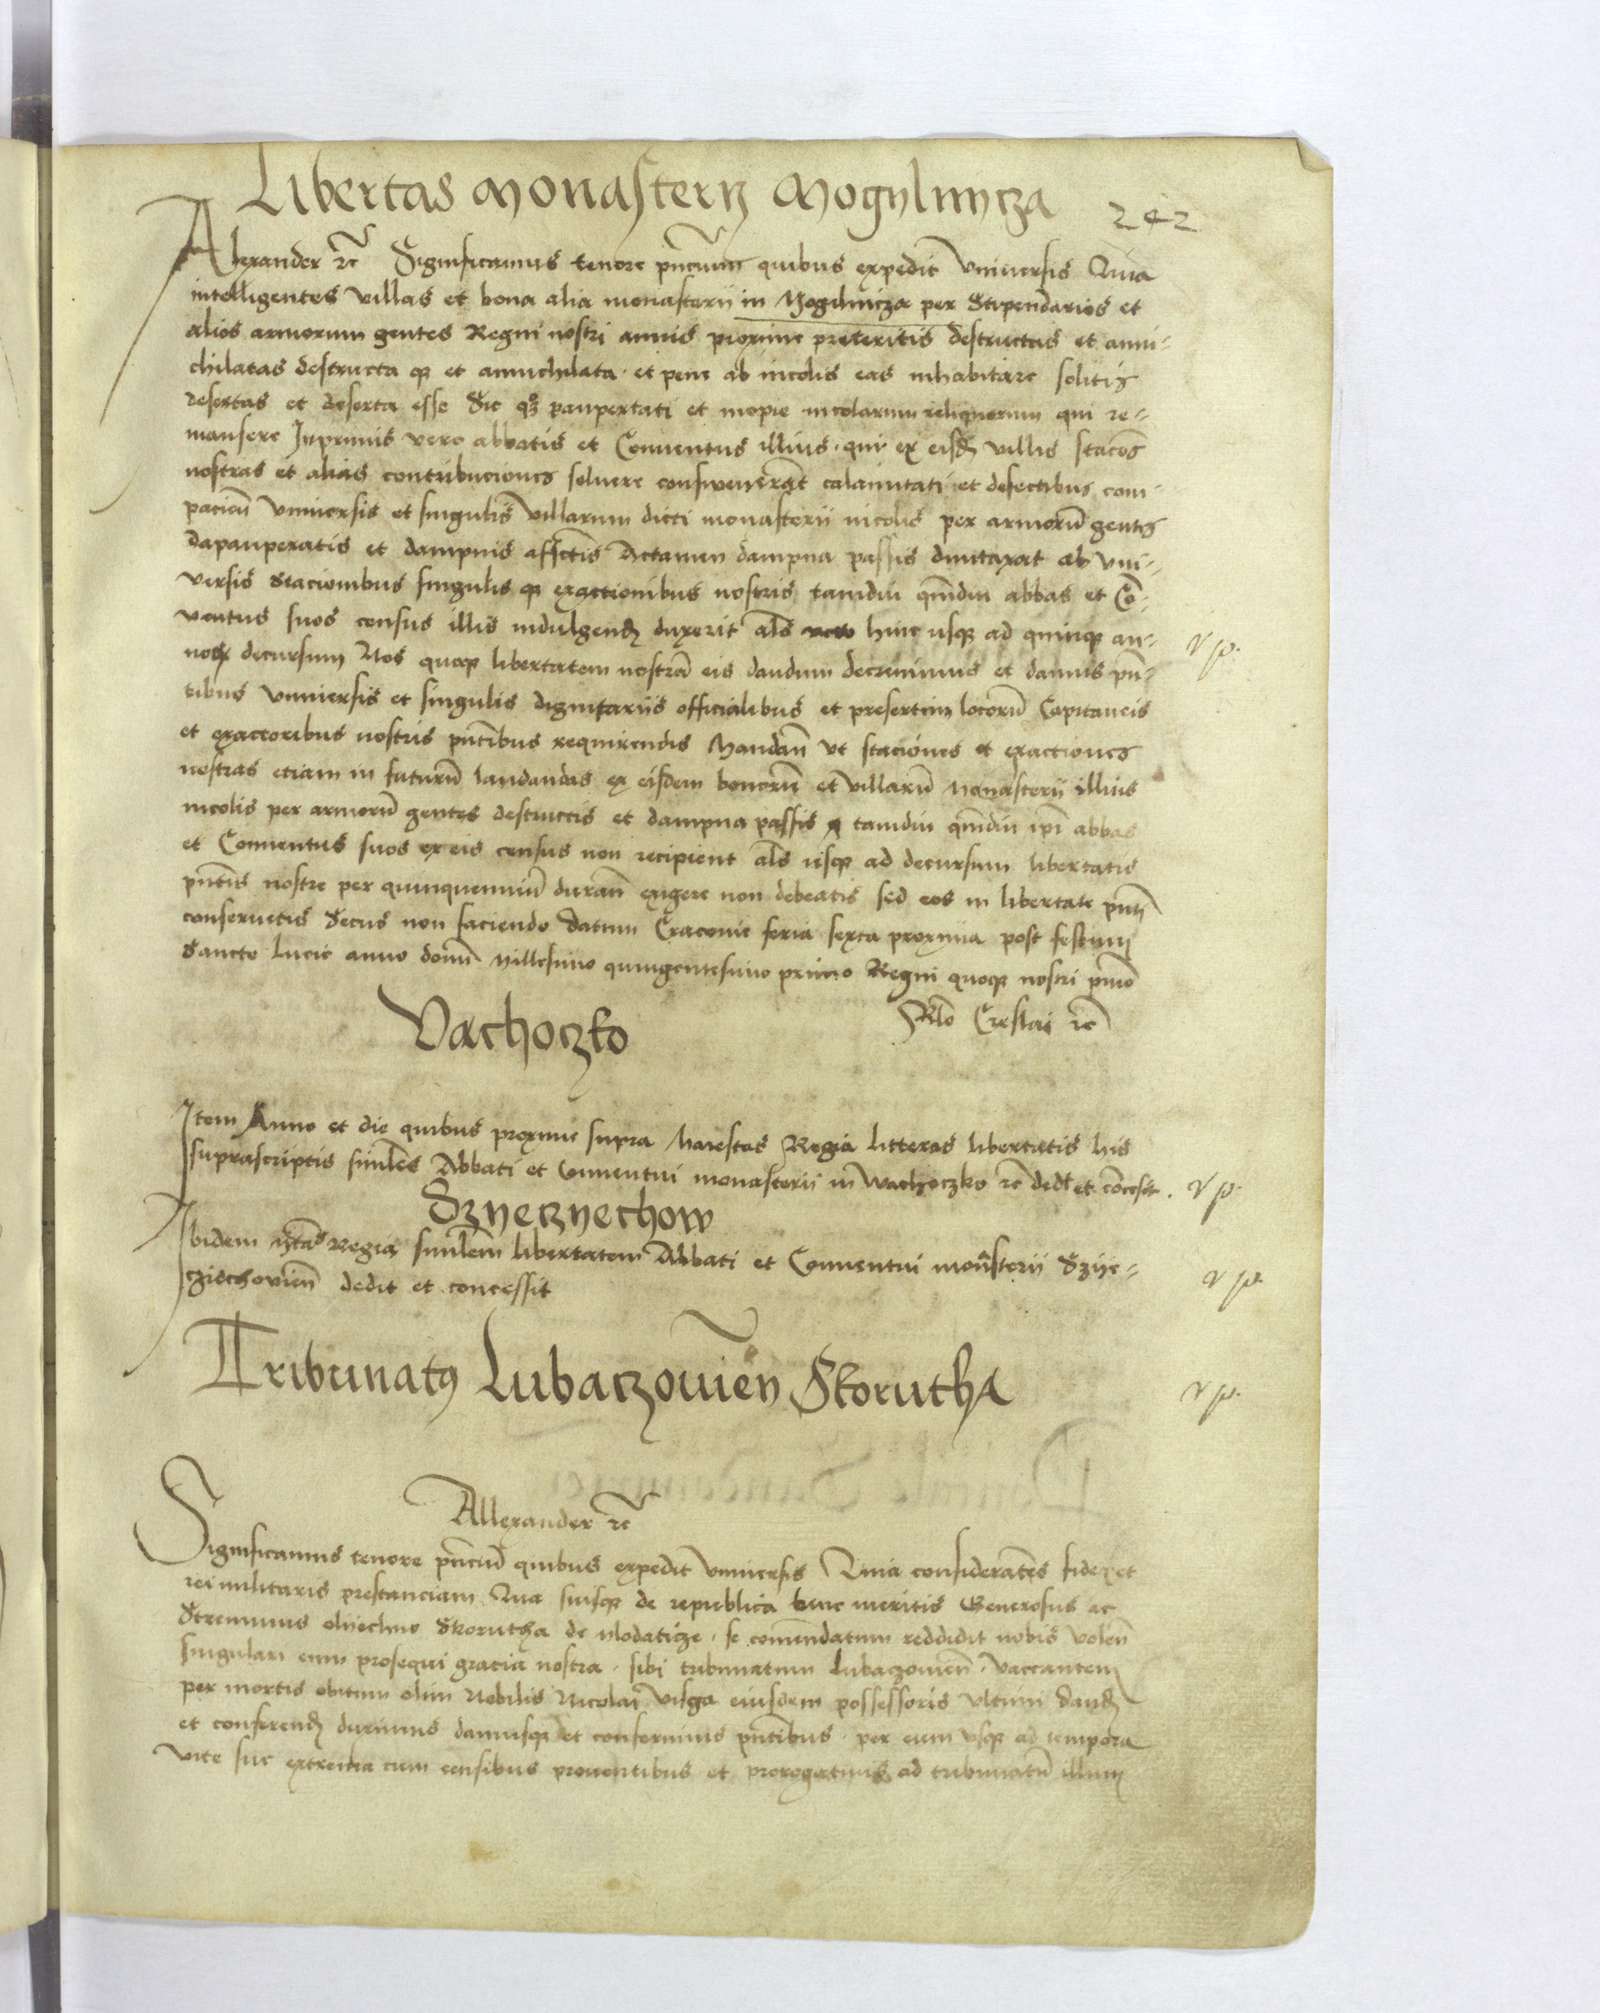 Libertas Monasterij Mogylnicza 242
Alexander etc Significamus tenore pñcium quibus expedit Vniuersis Quia
intelligentes villas et bona alia monasterii in Mogilnicza per Stipendarios et
alios armorum gentes Regni nostri annis proxime preteritis destructas et anni-
chilatas destructa qz et annichilata et pene ab incolis eas inhabitare solitis
desertas et deserta esse Sic qz paupertati et inopie incolarum reliquorum qui re-
mansere Inprimis vero abbatis et Conuentus illius qui ex eisd villis stacões
nostras et alias contribuciones soluere consweuerãt calamitati et defectibus com-
pacien Vniuersis et singulis villarum dicti monasterii incolis per armorũ gentes
dapauperatis et dampnis affectis Actamen dampna passis dumtaxat ab vni-
versis Stacionibus singulis qz exactionibus nostris tamdiu qmdiu abbas et Cõ-
uentus suos census illis indulgend duxerit als hinc usqz ad quinqz an-
nor decursum Nos quoqz libertatem nostrã eis dandum decreuimus et damus pñ-
tibus Vniuersis et singulis dignitariis officialibus et presertim locorũ Capitaneis
et exactoribus nostris pñtibus requirendis Mandañ vt staciones et exactiones
nostras etiam in futurũ laudandas ex eisdem bonorũ et villarũ Monasterii illius
incolis per armorũ gentes destructis et dampna passis tamdiu qmdiu ipi abbas
et Conuentus suos ex eis census non recipient als usqz ad decursum libertatis
pñtis nostre per quinquenniũ durañ exigere non debeatis sed eos in libertate pñti
conseruetis Secus non faciendo Datum Cracouie feria sexta proxima post festum
Sancte Lucie anno domi Millesimo quingentesimo primo Regni quoqz nostri pmo
Rlo Creslai etc
Vachoczko
Item Anno et die quibus proxime supra Maiestas Regia litteras libertatis his
suprascriptis similes Abbati et Conuentui monasterii in Wachoczko etc dedt et concessit
Szyeczyechow
Ibidem Mtas Regia similem libertatem Abbati et Conuentui monsterii Szije-
cziechouieñ dedit et concessit
Tribunatus Lubaczouien Skorutha
Allexander etc
Significamus tenore pñciũ quibus expedit vniuersis Quia considerantes fidem et
rei militaris prestanciam Qua suisqz de republica bene meritis Generosus ac
Strennuus Skorutha de se comendatum reddidit nobis volen
singulari eum prosequi gracia nostra sibi tribunatum Lubaczouieñ vaccantem
per mortis obitum olim Nobilis Nicolai Visga eiusdem possessoris vltimi dand
et conferend duximus damusqz et conferimus pñtibus per eum vsqz ad tempora
vite sue extrema cum censibus prouentibus et prerogatiuis ad tribunatũ illum